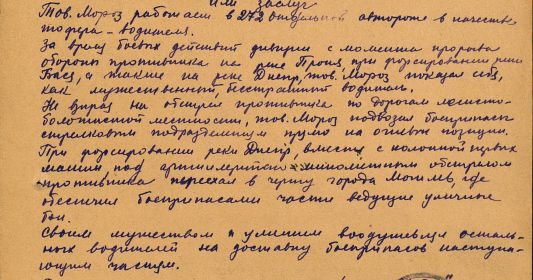 или заслуг
Тов. Мороз работает в 272 отдельной автороте в качестве
шофера-водителя.
За время боевых действий дивизии с момента прорыва
обороны противника на реке Проня, при форсировании реки
Бася, а также на реке Днепр, тов. Мороз показал себя,
как мужественный, бесстрашный водитель.
Не взирая на обстрел противника по дорогам лесисто-
болотистой местности, тов. Мороз подвозил боеприпасы
стрелковым подразделениям прямо на огневые позиции.
При форсировании реки Днепр, вместе с колонной первых
машин под артиллерийско-минометным обстрелом
противника переехал в черту города Могилев, где
обеспечил боеприпасами части ведущие уличные
бои.
Своим мужеством и умением воодушевлял осталь-
ных водителей на доставку боеприпасов наступа-
ющим частям.